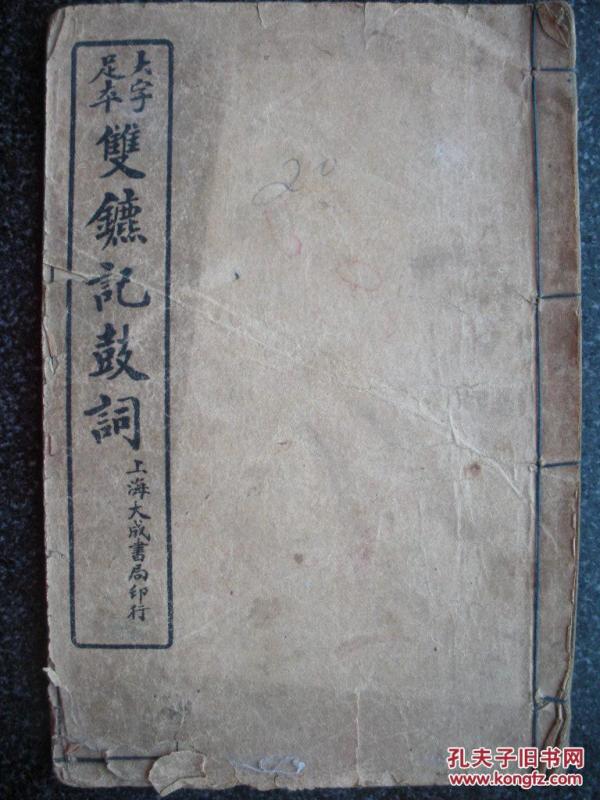 大字
足夲
雙鑣記鼓詞
上海大成書局印行
20
孔夫子旧书网
www.kongfz.com